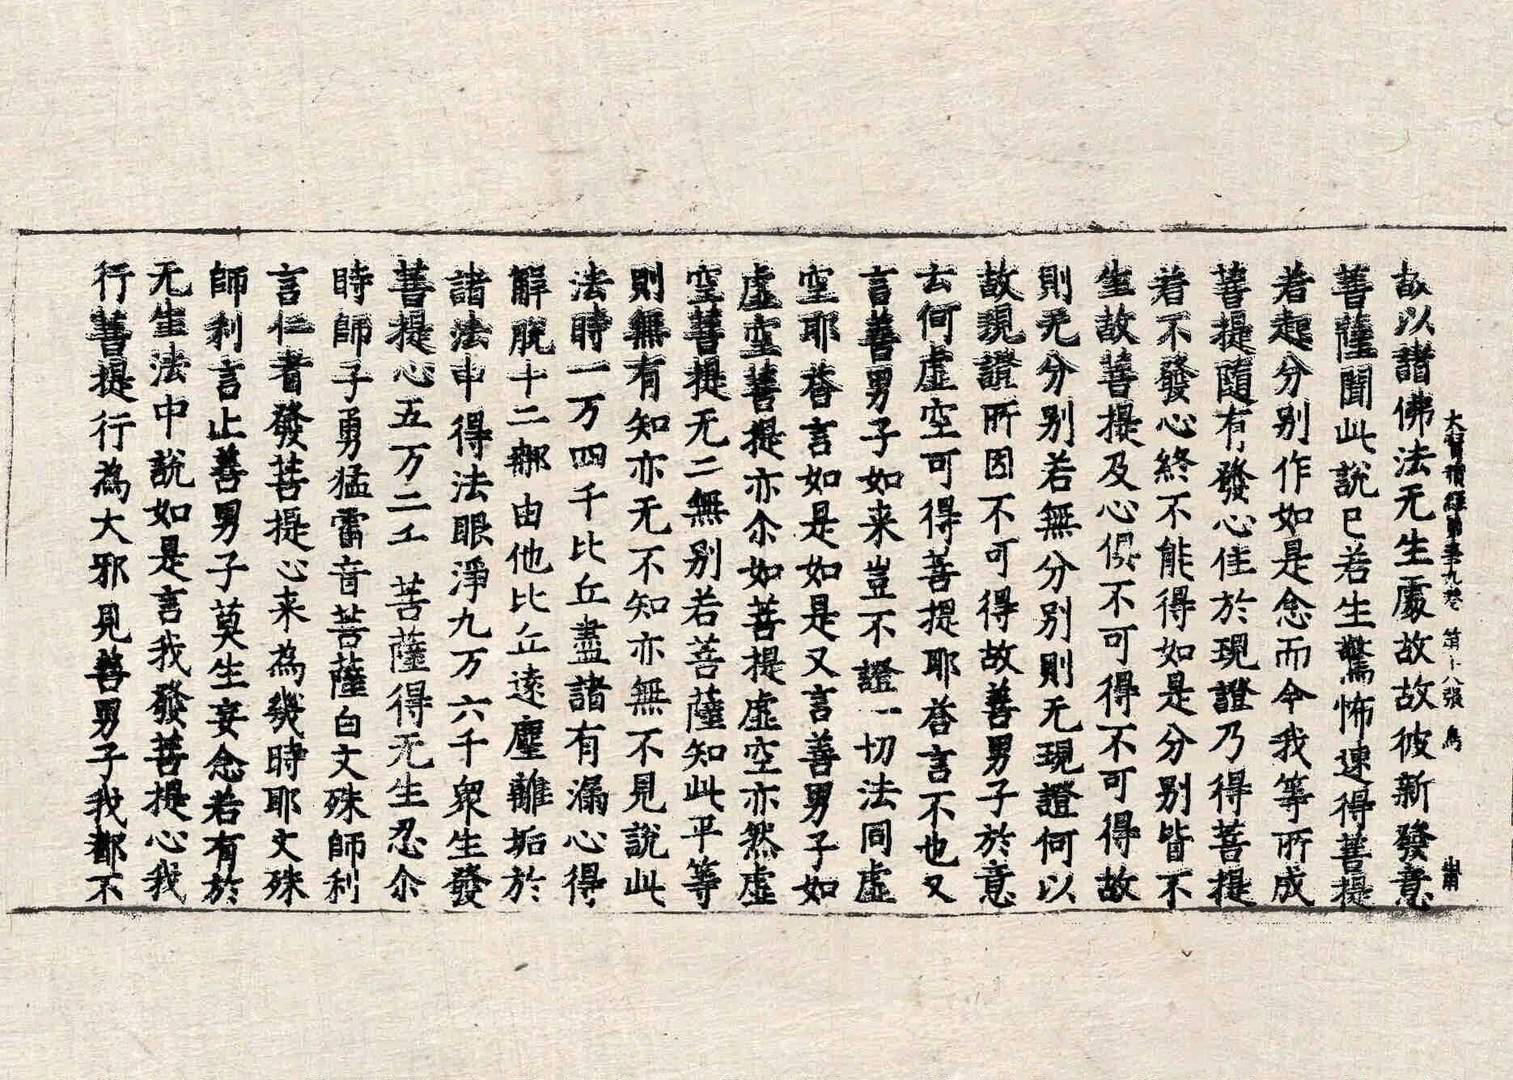 大寶積經第五十九卷 第十八張 鳥
故以諸佛法无生處故故彼新發意
菩薩聞此說已若生驚怖速得菩提
若起分别作如是念而今我等所成
菩提隨有發心住於現證乃得菩提
若不發心終不能得如是分别皆不
生故菩提及心俱不可得不可得故
則无分别若無分别則无現證何以
故現證所因不可得故善男子於意
云何虛空可得菩提耶荅言不也又
言善男子如来豈不證一切法同虛
空耶荅言如是如是又言善男子如
虛空菩提亦尒如菩提虛空亦然虛
空菩提无二無别若菩薩知此平等
則無有知亦无不知亦無不見說此
法時一万四千比丘盡諸有漏心得
解脫十二那由他比丘遠塵離垢於
諸法中得法眼淨九万六千衆生發
菩提心五万二千菩薩得无生忍尒
時師子勇猛雷音菩薩白文殊師利
言仁者發菩提心来為幾時耶文殊
師利言止善男子莫生妄念若有於
无生法中說如是言我發菩提心我
行菩提行為大邪見善男子我都不